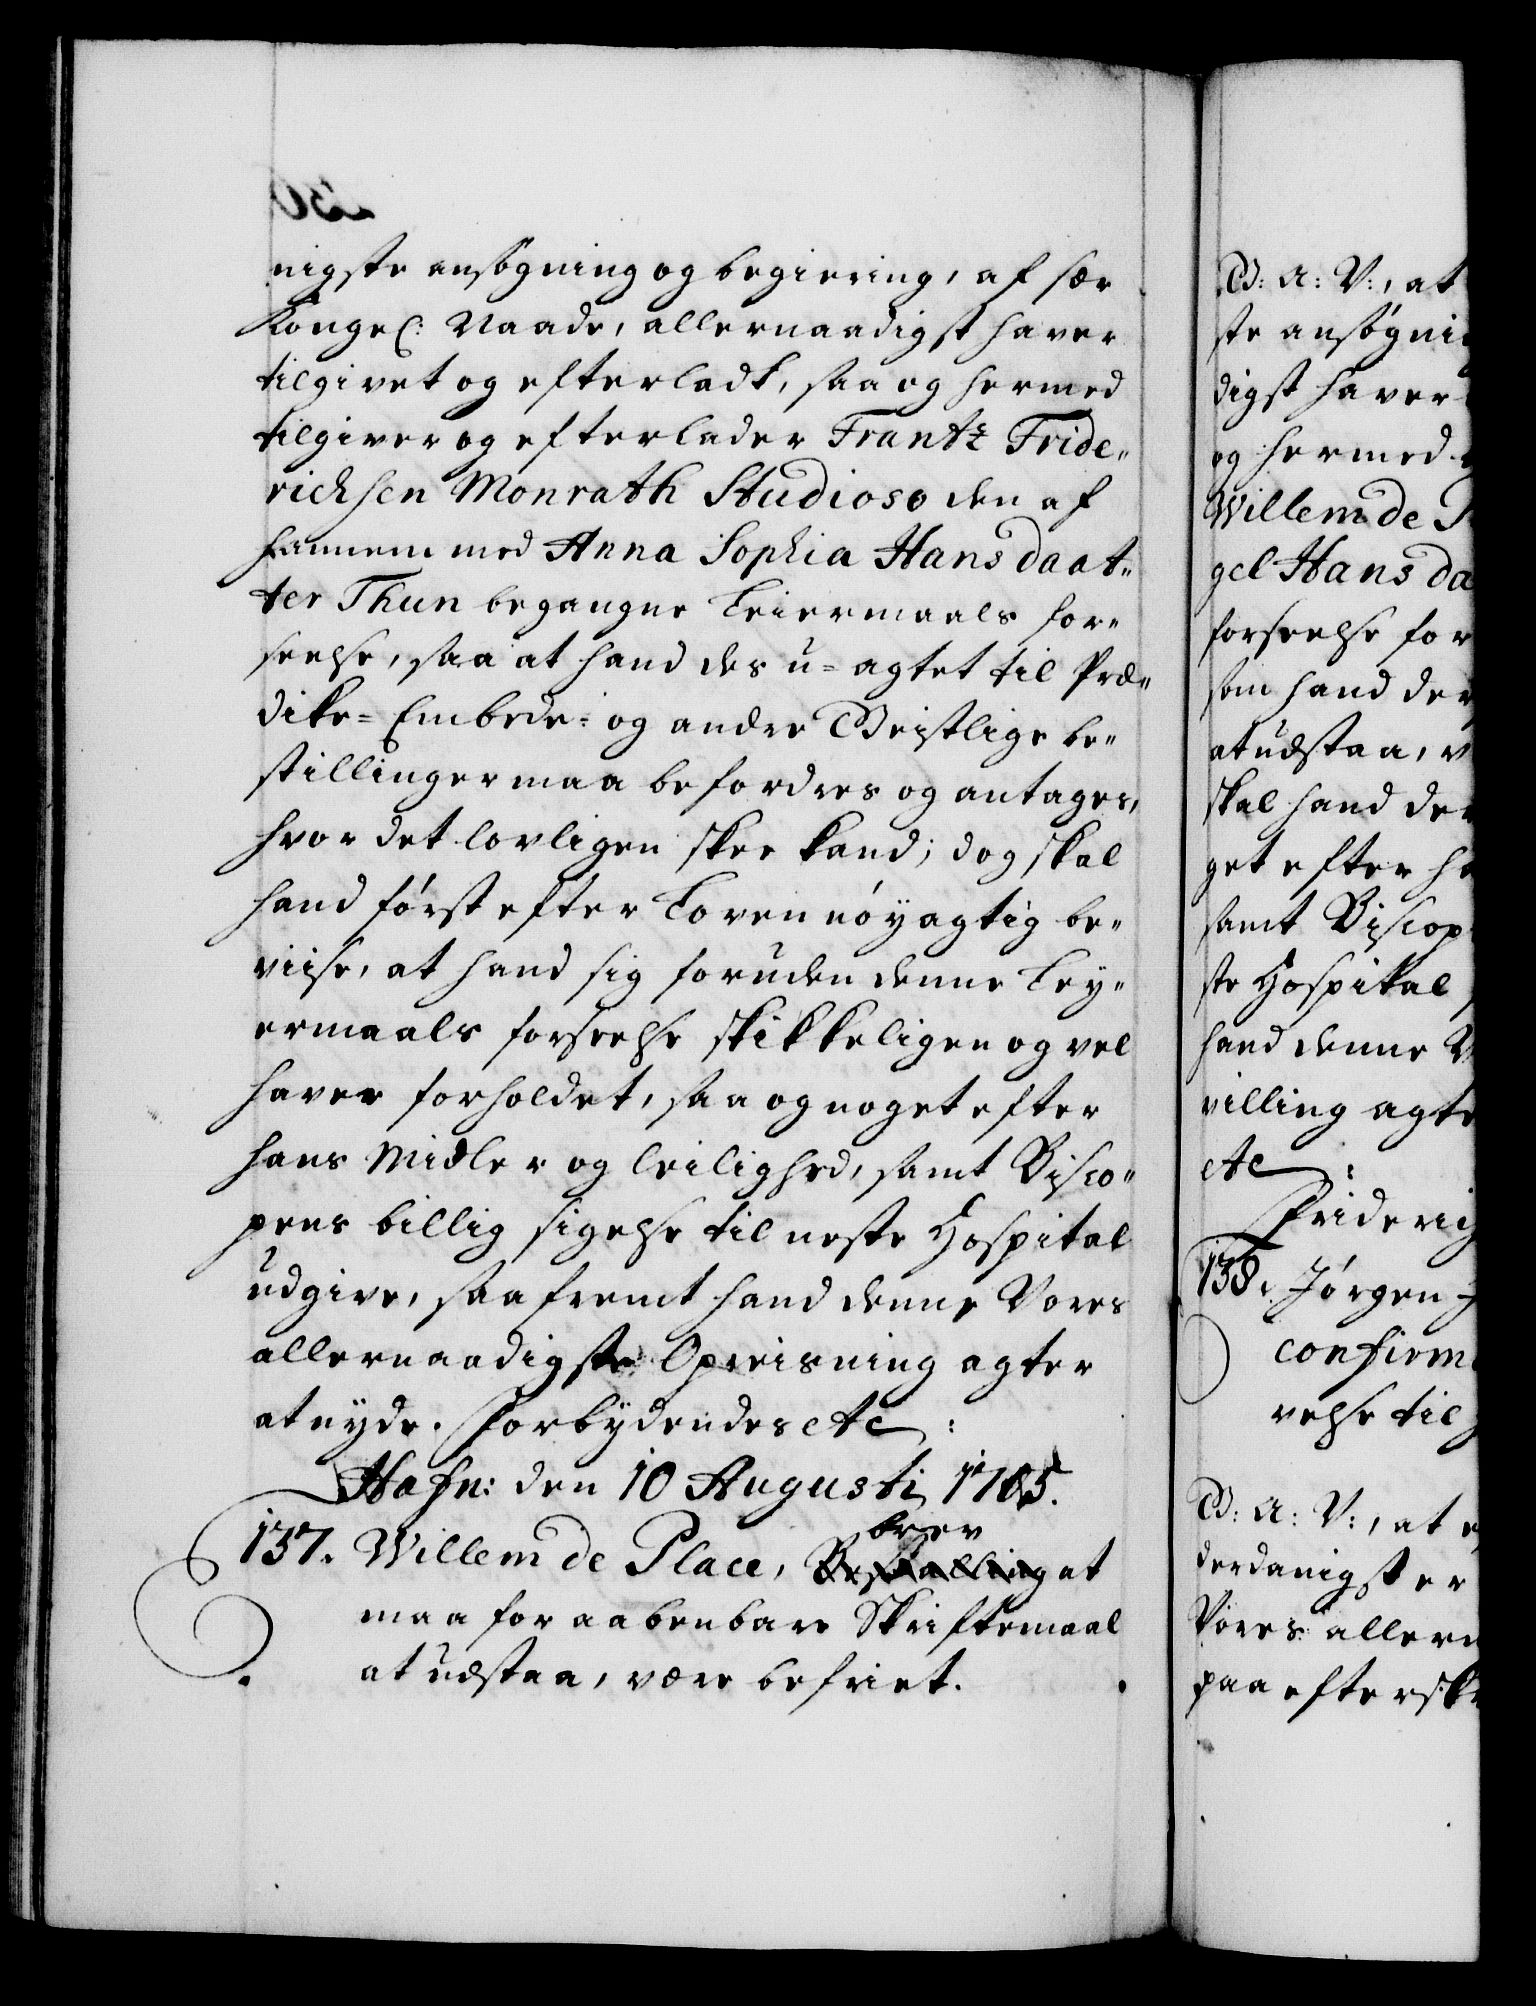 nigste ansøgning og begiering, af sær
Kongel: Naade, allernaadigst haver
tilgivet og efterladt, saa og hermed
tilgiver og efterlader Frantz Fride„
richsen Monrath Studioso den af
hannem med Anna Sophia Hansdaat„
ter Thun begangne Leiermaals for„
seelse, saa at hand des u-agtet til Præ„
dike-Embede- og andre Geistlige be„
stillinger maa befordres og antages,
hvor det lovligen skee kand; dog skal
hand først efter Loven nøyagtig be„
viise, at hand sig foruden denne Ley„
ermaals forseelse skikkeligen og vel
haver forholdet, saa og noget efter
hans Midler og leilighed, samt Bisco„
pens billig sigelse til neste Hospital
udgive, saafremt hand denne Vores
allernaadigste Opreisning agter
at nyde. Forbydendes etc:
Hafn: den 10 Augusti 1705.
brev
137. Willem de Place, Bestalling at
maa for aabenbare Skriftemaal
at udstaa, være befriet.
G: A: V:, at
ste ansøgni
digst haver
og hermed
Willem de P
gel Hansda
forseelse for
som hand der
at udstaa, v
skal hand der
get efter ha
samt Biscop
ste Hospital
hand denne V
villing agte
etc:
Friderig
138. Jørgen
confirm
relse til
G: A: V:, at
derdanigst er
Vores allern
paa eftersk